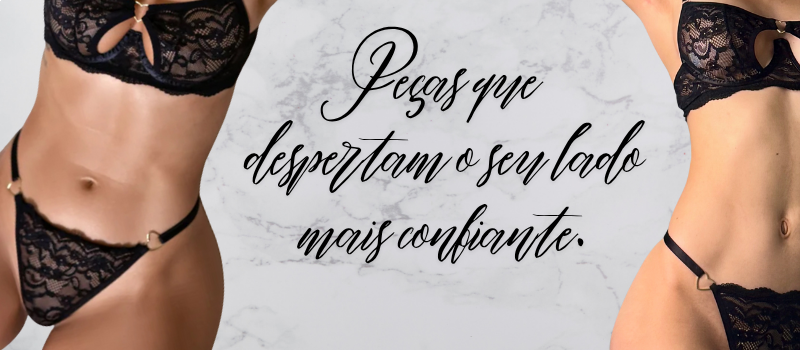 Peças que
despertam o seu lado
mais confiante.